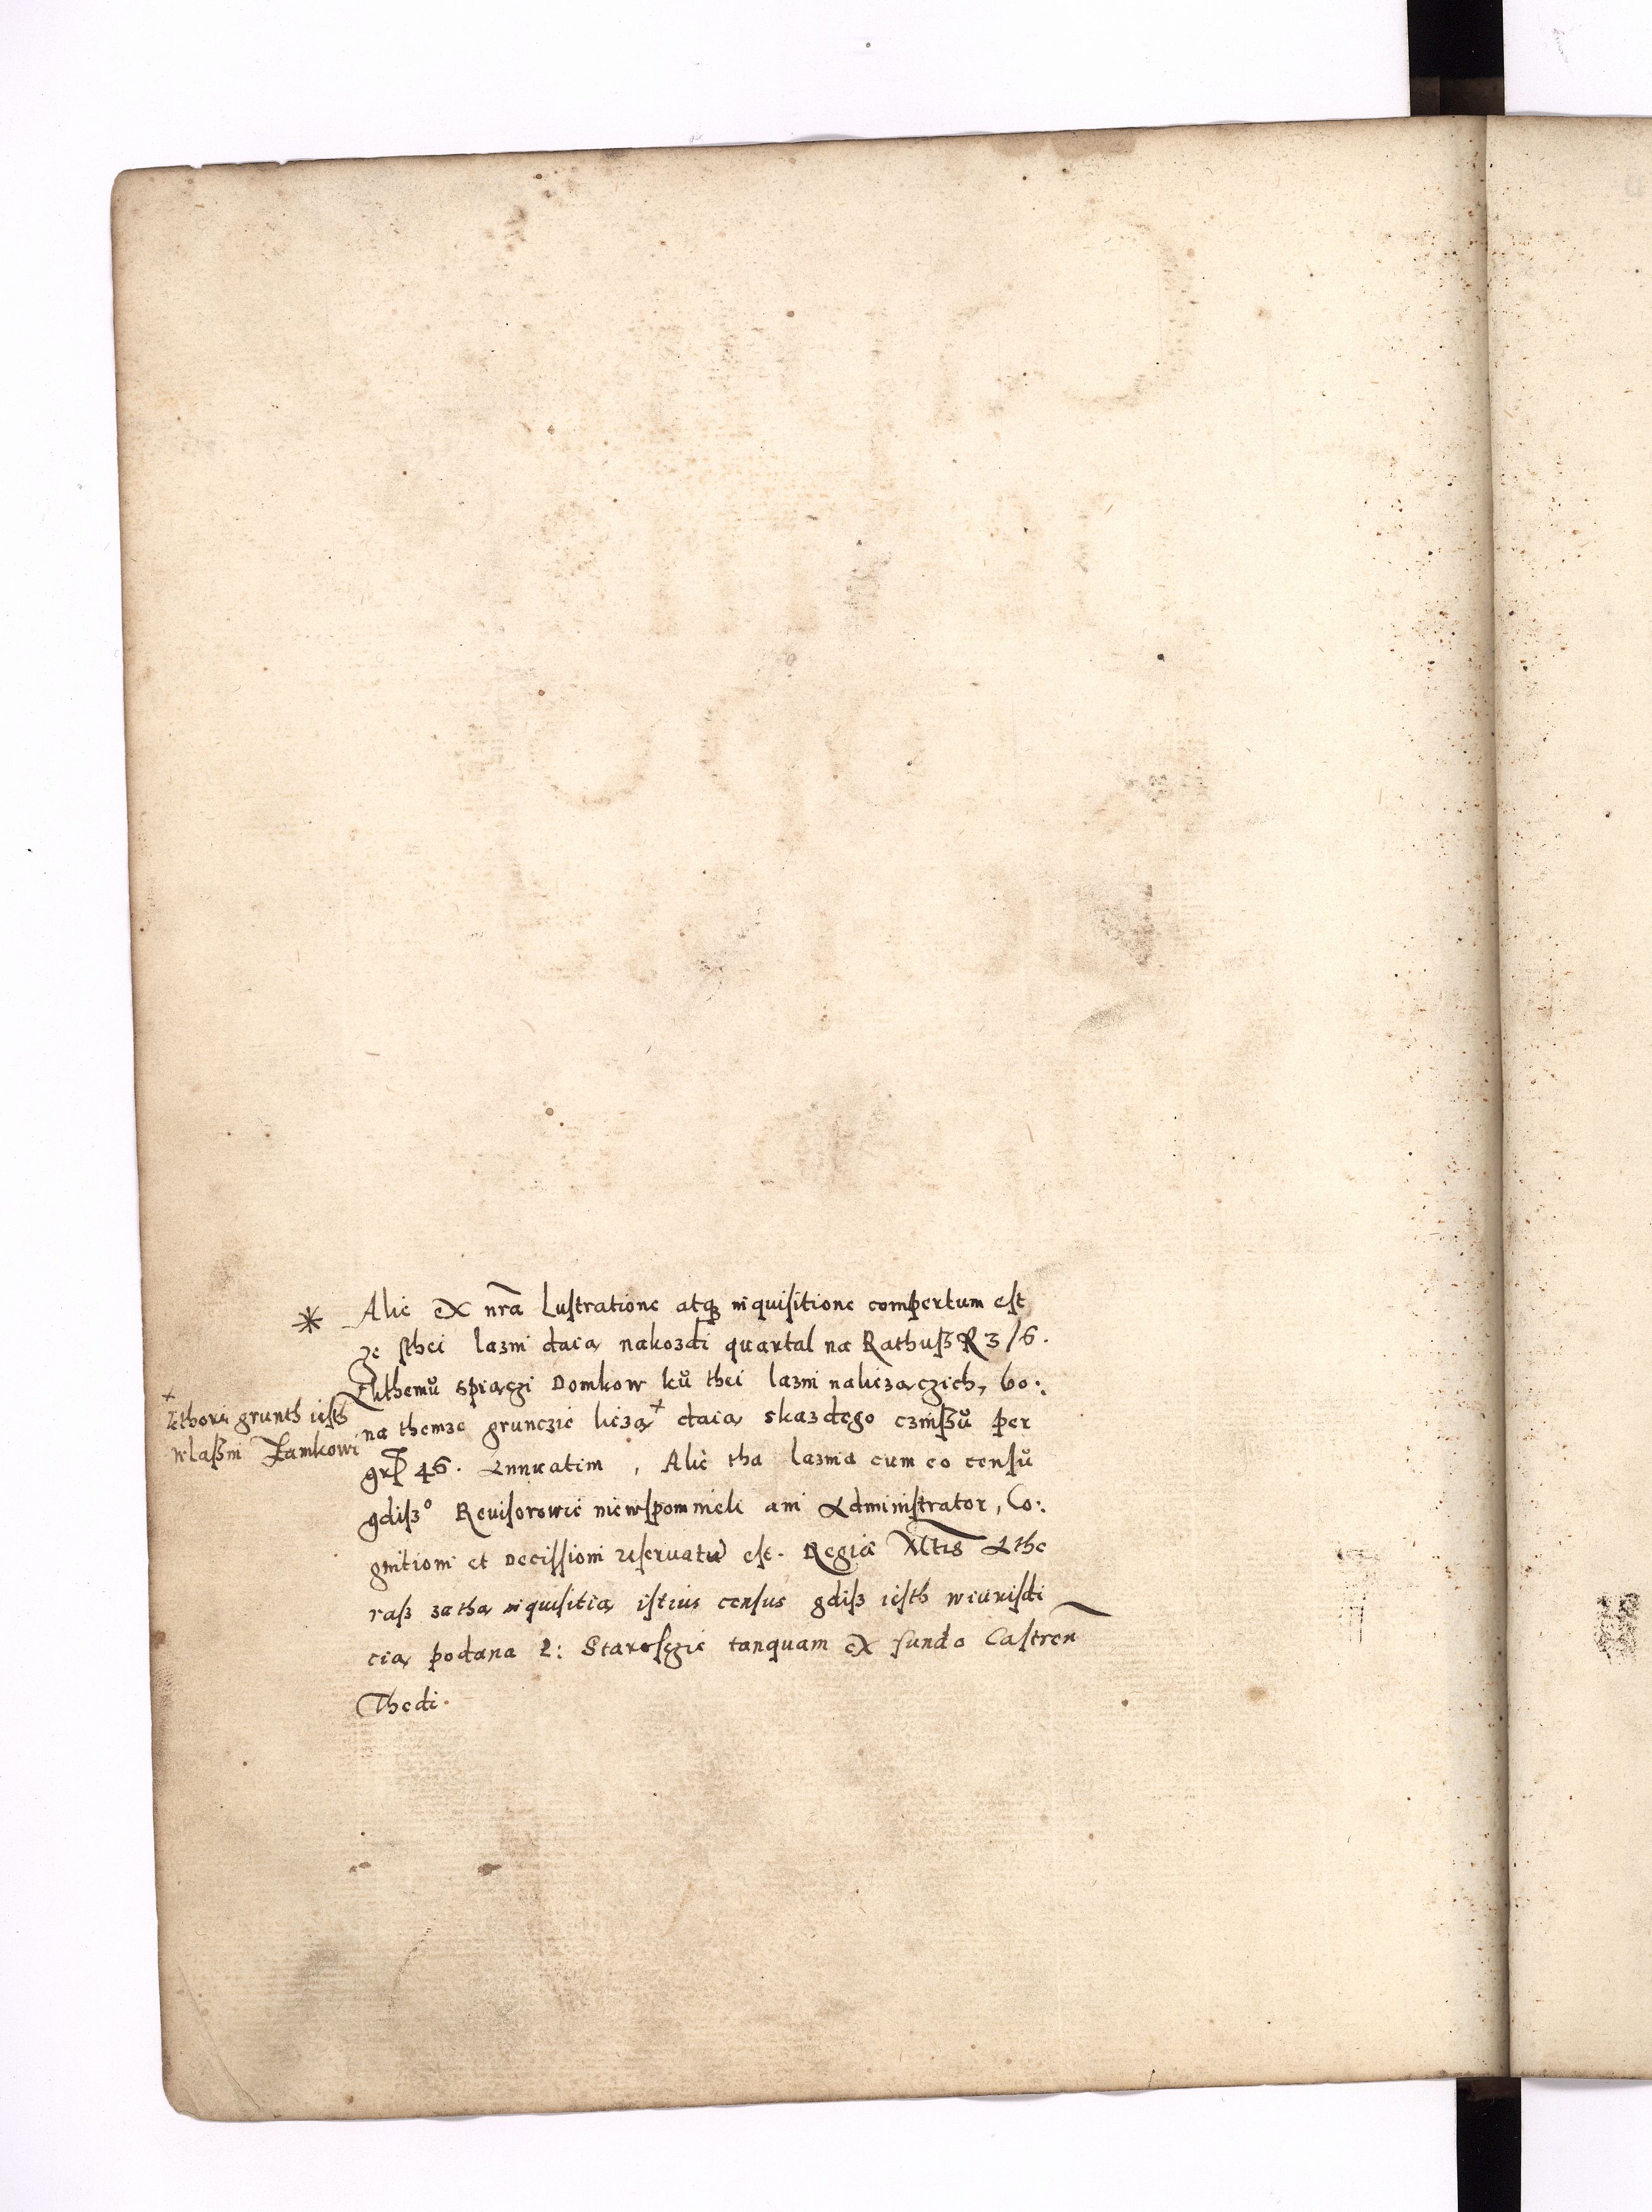 * Alie ex nr̃a Lustratione atq3 inquisitione compertum est
ze sthei lazni daią nakozdi quartal na Rathusz R 3/6.
kthemů spiąci Domkow ků thei lazni nalezączich, bo:
na themze gruncie liezą + daią skazdego czinszů per
gr 46. Annuatim, Alie tha laznia cum eo censů
gdisz° Revisorowie niewspomnieli ani Administrator, Co:
gnitioni et Decissioni reservatũ est. Regiæ Mtis Athe
rasz zathą inquisitią istius census gdisz iesth wiurisdi
cią podana P: Staroscie tanquam ex fundo Castren̄
Thedi.
+ kthori grunth iesth
wlasni Zamkowi